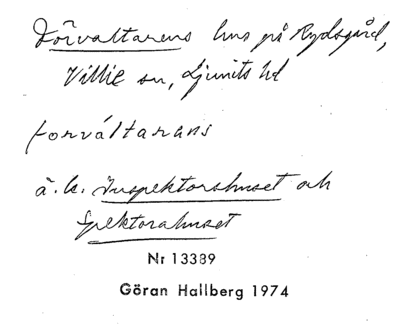 Förvaltarens hus på Rydsgård,
Villie sn, Ljunits hd
forváltarans
ä. k. Inspektorshuset och
Spektorahuset
Nr 13389
Göran Hallberg 1974